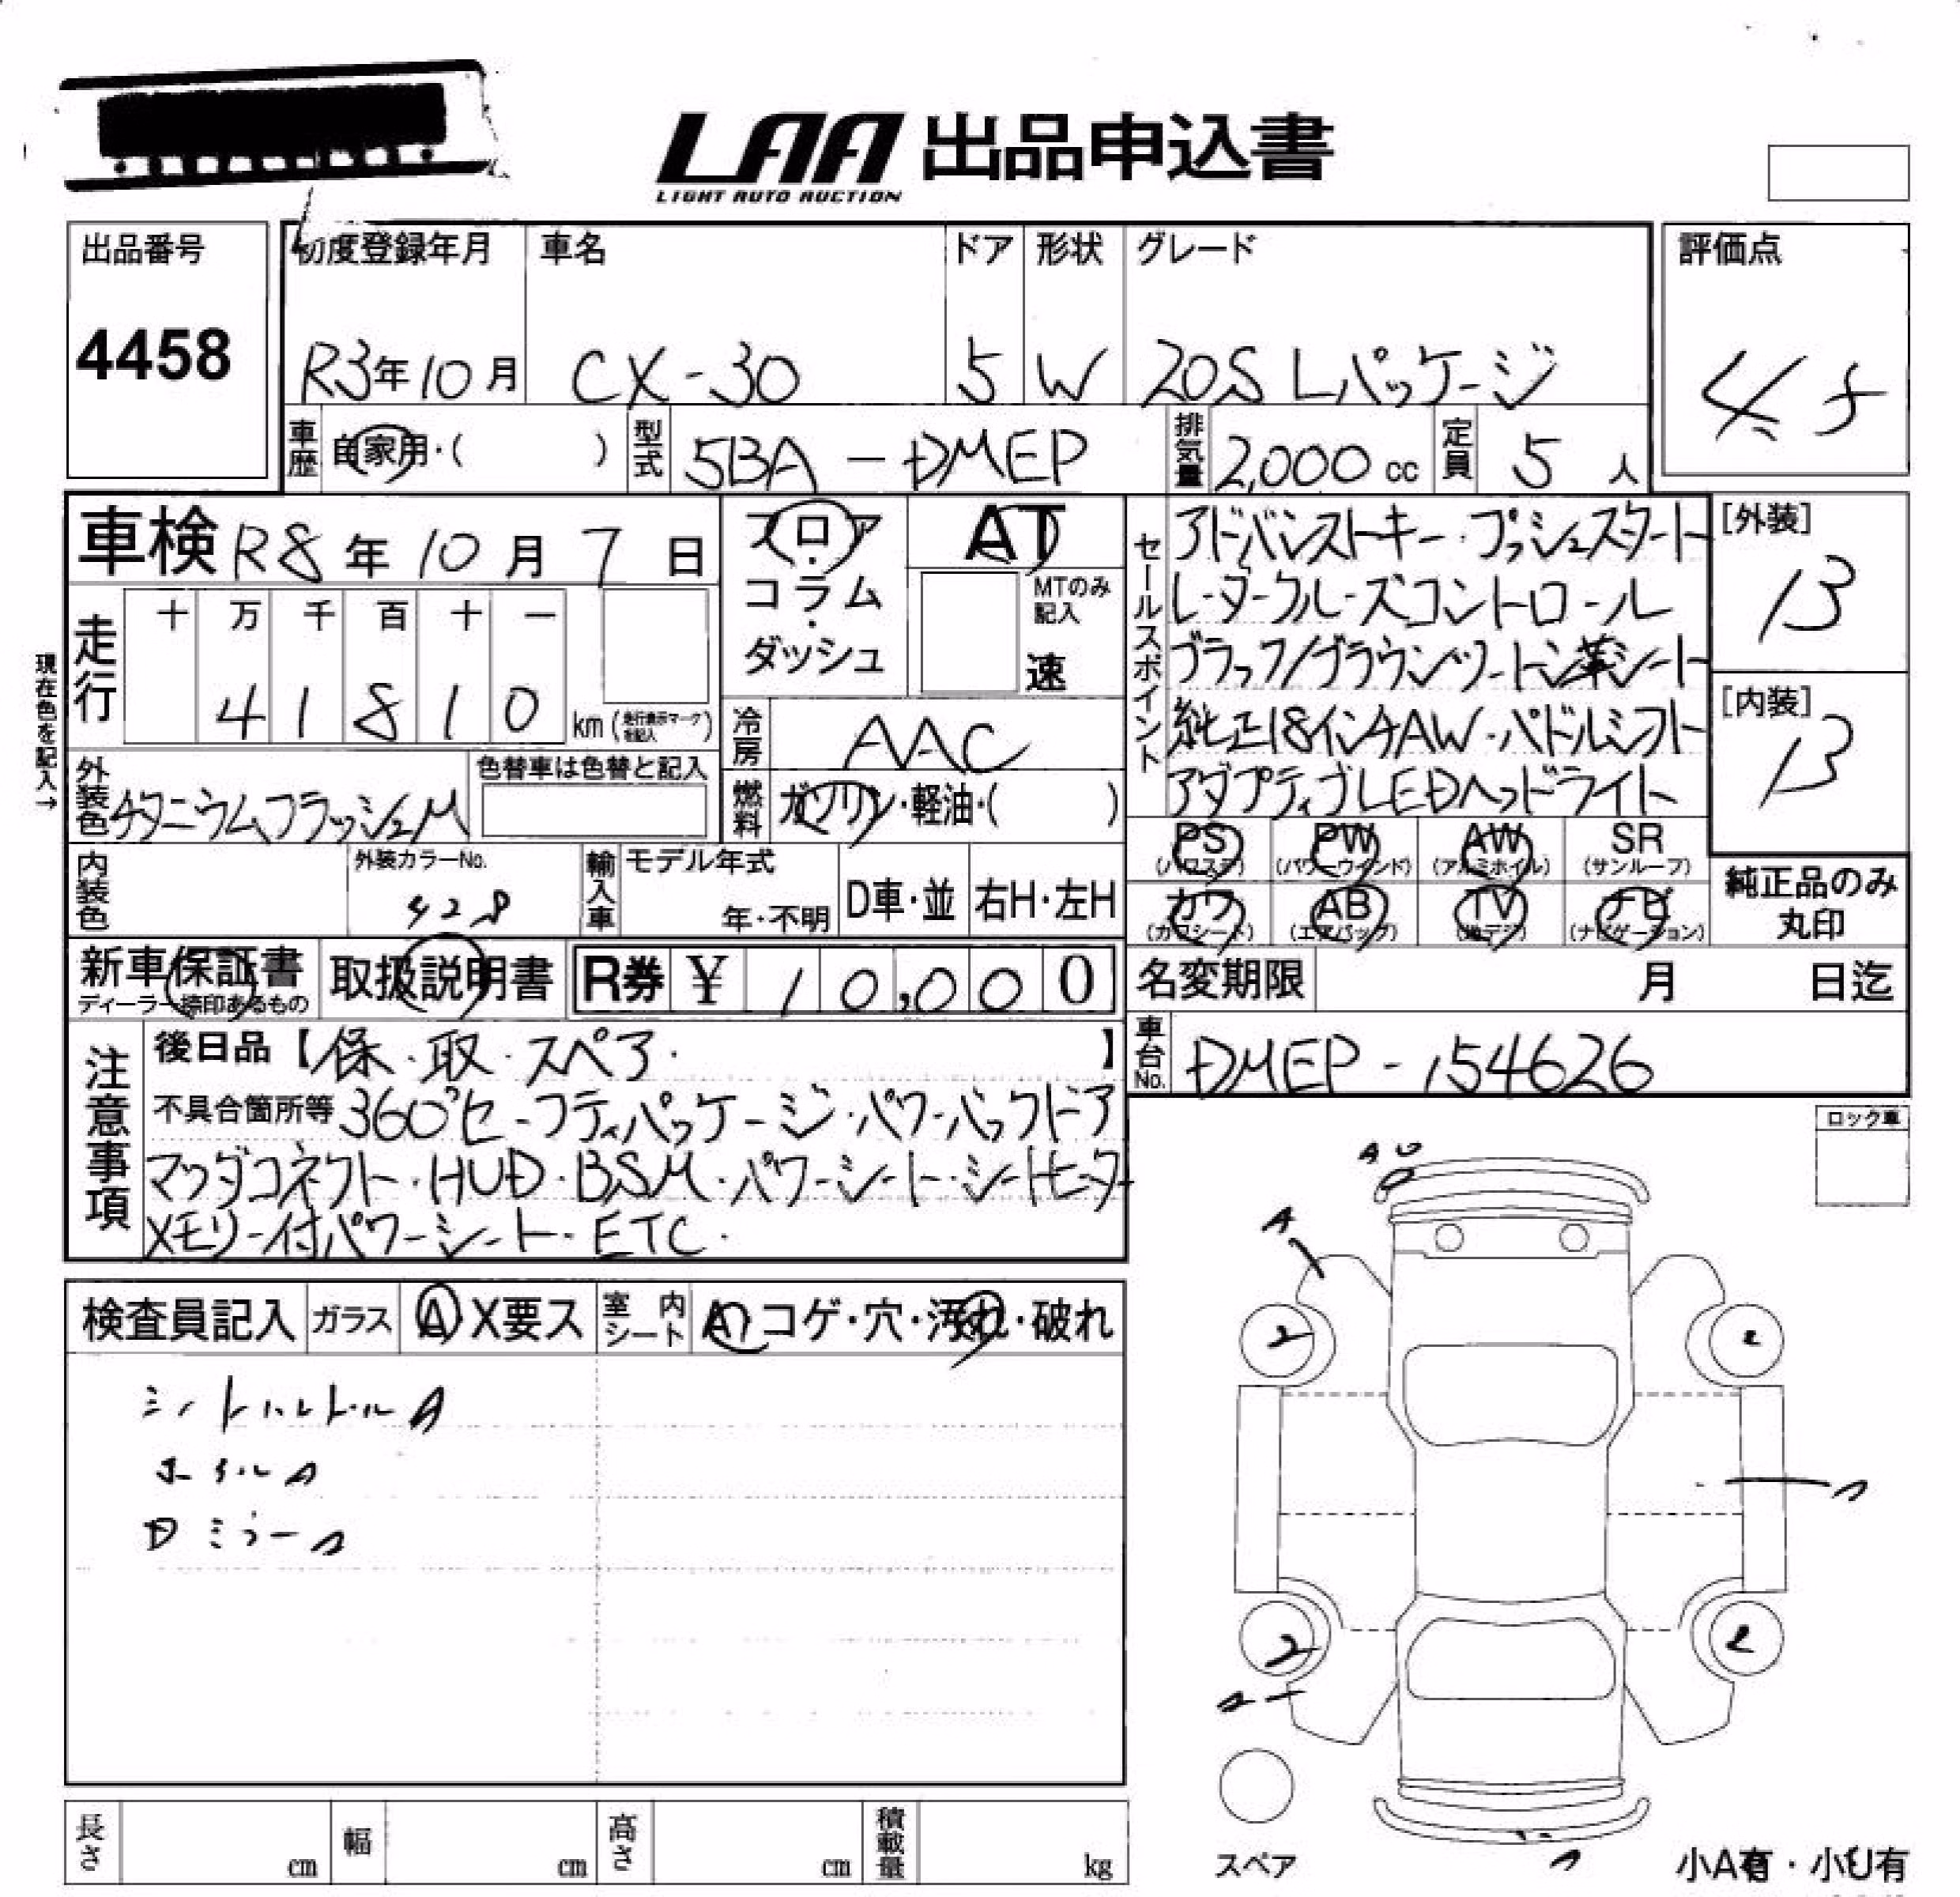 LAA 出品申込書
LIGHT AUTO AUCTION
出品番号
4458
初度登録年月
R3年10月
車名
CX-30
ドア
5
形状
W
グレード
20S Lパッケージ
評価点
車歴
自家用・( )
型式
5BA - DMEP
排気量
2,000 cc
定員
5 人
車検 R8年 10月 7日
フロア・
コラム・
ダッシュ
AT
MTのみ
記入
速
セールスポイント
アドバンストキー・プッシュスタート
レーダークルーズコントロール
ブラック/ブラウンツートン革シート
純正18インチAW・パドルシフト
アダプティブLEDヘッドライト
[外装]
[内装]
現在色を記入→
走行
十 万 千 百 十 一
4 1 8 1 0
km (走行表示マークを記入)
冷房
AAC
外装色
チタニウムフラッシュM
色替車は色替と記入
燃料
ガソリン・軽油・( )
PS
(パワステ)
PW
(パワーウインド)
AW
(アルミホイル)
SR
(サンルーフ)
カワ
(カワシート)
AB
(エアバッグ)
TV
(地デジ)
ナビ
(ナビゲーション)
純正品のみ
丸印
内装色
外装カラーNo.
輸入車
モデル年式
年・不明
D車・並
右H・左H
新車保証書
ディーラー捺印あるもの
取扱説明書
R券 ¥ 10,000
名変期限
月 日迄
車台No.
DMEP - 154626
注意事項
後日品【保・取・スペア・ 】
不具合箇所等 360°セーフティパッケージ・パワーバックドア
マツダコネクト・HUD・BSM・パワーシート・シートヒーター
メモリー付パワーシート・ETC・
ロック車
検査員記入
ガラス
A X要ス
室内シート
コゲ・穴・汚れ・破れ
Dミラー
長さ
cm
幅
cm
高さ
cm
積載量
kg
スペア
小A有・小U有